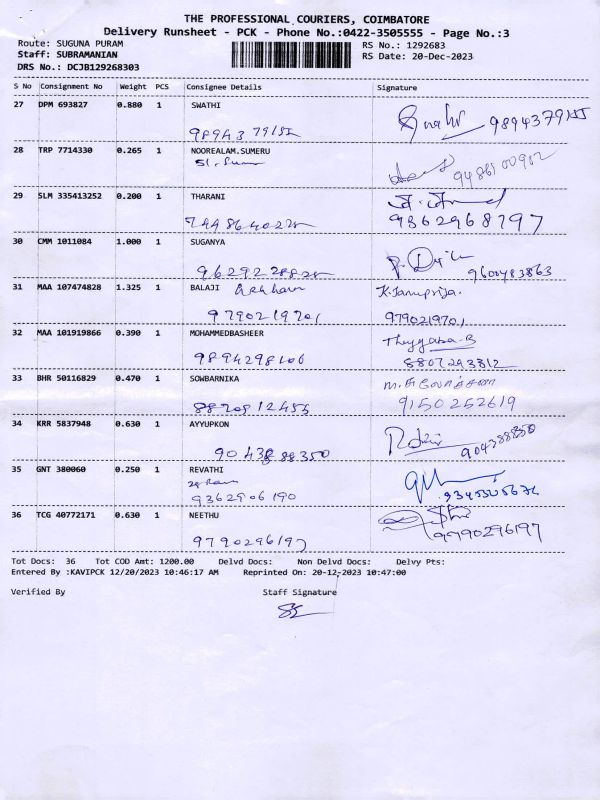 THE PROFESSIONAL COURIERS, COIMBATORE
Delivery Runsheet - PCK - Phone No.:0422-3505555 - Page No.:3
Route: SUGUNA PURAM
RS No.: 1292683
Staff: SUBRAMANIAN
RS Date: 20-Dec-2023
DRS No.: DCJB129268303
S No Consignment No Weight PCS Consignee Details Signature
27 DPM 693827 0.880 1 SWATHI
28 TRP 7714330 0.265 1 NOOREALAM.SUMERU
29 SLM 335413252 0.200 1 THARANI
9362968797
30 CMM 1011084 1.000 1 SUGANYA
9600483863
31 MAA 107474828 1.325 1 BALAJI
9790219701 9790219701
32 MAA 101919866 0.390 1 MOHAMMEDBASHEER
9894298106 8807293812
33 BHR 50116829 0.470 1 SOWBARNIKA
8870812455 9150252619
34 KRR 5837948 0.630 1 AYYUPKON
9043888350
35 GNT 380060 0.250 1 REVATHI
9362906190
36 TCG 40772171 0.630 1 NEETHU
9790296197 9790296197
Tot Docs: 36 Tot COD Amt: 1200.00 Delvd Docs: Non Delvd Docs: Delvy Pts:
Entered By :KAVIPCK 12/20/2023 10:46:17 AM Reprinted On: 20-12-2023 10:47:00
Verified By Staff Signature